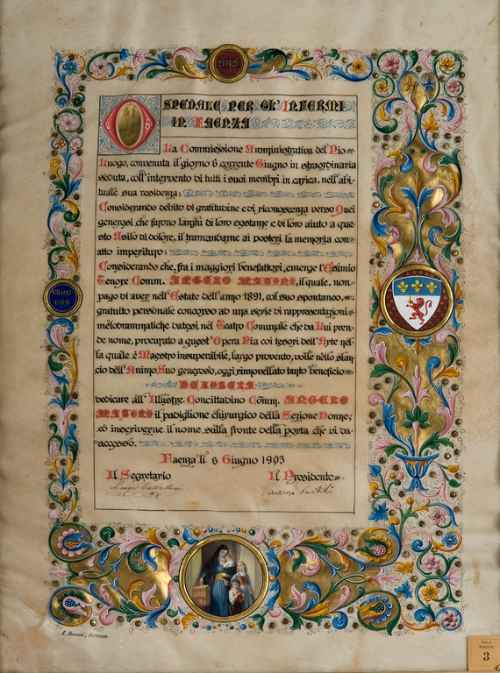 OSPEDALE PER GL' INFERMI
IN FAENZA
La Commissione Amministrativa del Pio-
Luogo, convenuta il giorno 6 corrente Giugno in straordinaria
seduta, coll'intervento di tutti i suoi membri in carica, nell'abi-
tuale sua residenza:
Considerando debito di gratitudine e di riconoscenza verso Quei
generosi che furono larghi di loro sostanze e di loro aiuto a que-
sto Asilo di dolore, il tramandarne ai posteri la memoria con
atto imperituro:
Considerando che, fra i maggiori benefattori, emerge l'Esimio
Tenore Comm. ANGELO MASINI, il quale, non
pago di aver nell'Estate dell'anno 1891, col suo spontaneo,
gratuito personale concorso ad una serie di rappresentazioni
melodrammatiche datesi nel Teatro Comunale che da Lui pren-
de nome, procurato a quest'Opera Pia coi tesori dell'Arte nel-
la quale è Maestro insuperabile, largo provento, volle nello slan-
cio dell'Animo Suo generoso, oggi rinnovellato tanto beneficio
DELIBERA
dedicare all'Illustre Concittadino Comm. ANGELO
MASINI il padiglione chirurgico della Sezione Donne,
ed inscriverne il nome sulla fronte della porta che vi dà
accesso.
Faenza li 6 Giugno 1903
Il Segretario Il Presidente
3